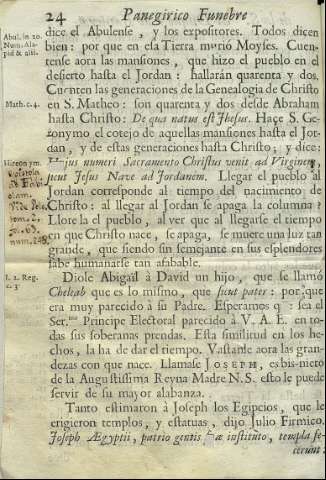 24 Panegirico Funebre
dice el Abulense, y los expositores. Todos dicen
Abul. in 20.
Num. Ala-
pid & alii.
bien: por que en esa Tierra murió Moyses. Cuen-
tense aora las mansiones, que hizo el pueblo en el
desierto hasta el Jordan: hallarán quarenta y dos.
Cuenten las generaciones de la Genealogia de Christo
Math. c. 4.
en S. Matheo: son quarenta y dos desde Abraham
hasta Christo: De qua natus est Jhesus. Haçe S. Ge-
ronymo el cotejo de aquellas mansiones hasta el Jor-
dan, y de estas generaciones hasta Christo; y dice:
Hieronym.
Hujus numeri Sacramento Christus venit ad Virginem,
sicut Jesus Nave ad Jordanem. Llegar el pueblo al
Jordan corresponde al tiempo del nacimiento de
Christo: al llegar al Jordan se apaga la columna?
Llore la el pueblo, al ver que al llegarse el tiempo
en que Christo nace, se apaga, se muere una luz tan
num. 243.
grande, que siendo sin semejante en sus esplendores
sabe humanarse tan afabable.
l. 2. Reg.
c. 3
Diole Abigaîl à David un hijo, que se llamó
Cheleab que es lo mismo, que sicut pater: por que
era muy parecido à su Padre. Esperamos q̃ sea el
Ser.mo Principe Electoral parecido à V. A. E. en to-
das sus soberanas prendas. Esta similitud en los he-
chos, la ha de dar el tiempo. Vastante aora las gran-
dezas con que nace. Llamase JOSEPH, es bis-nieto
de la Augustissima Reyna Madre N. S. esto le puede
servir de su mayor alabanza.
Tanto estimaron à Joseph los Egipcios, que le
erigieron templos, y estatuas, dijo Julio Firmico.
Joseph Ægyptii, patrio gentis suæ instituto, templa fe-
cerunt: